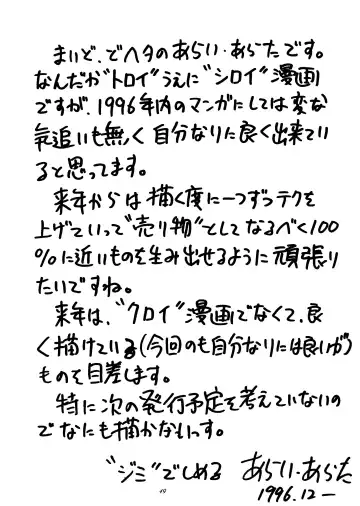 まいど、でヘタのあらい・あらたです。
なんだか“トロイ”うえに“シロイ”漫画
ですが、1996年内のマンガにしては変な
気追いも無く自分なりに良く出来てい
ると思ってます。
来年からは描く度に一つずつテクを
上げていって“売り物”としてなるべく100
%に近いものを生み出せるように頑張り
たいですね。
来年は、“クロイ”漫画でなくて、良
く描けている(今回のも自分なりには良いが)
ものを目差します。
特に次の発行予定を考えていないの
でなにも描かないっす。
“ジミ”でしめる あらい・あらた
1996.12―